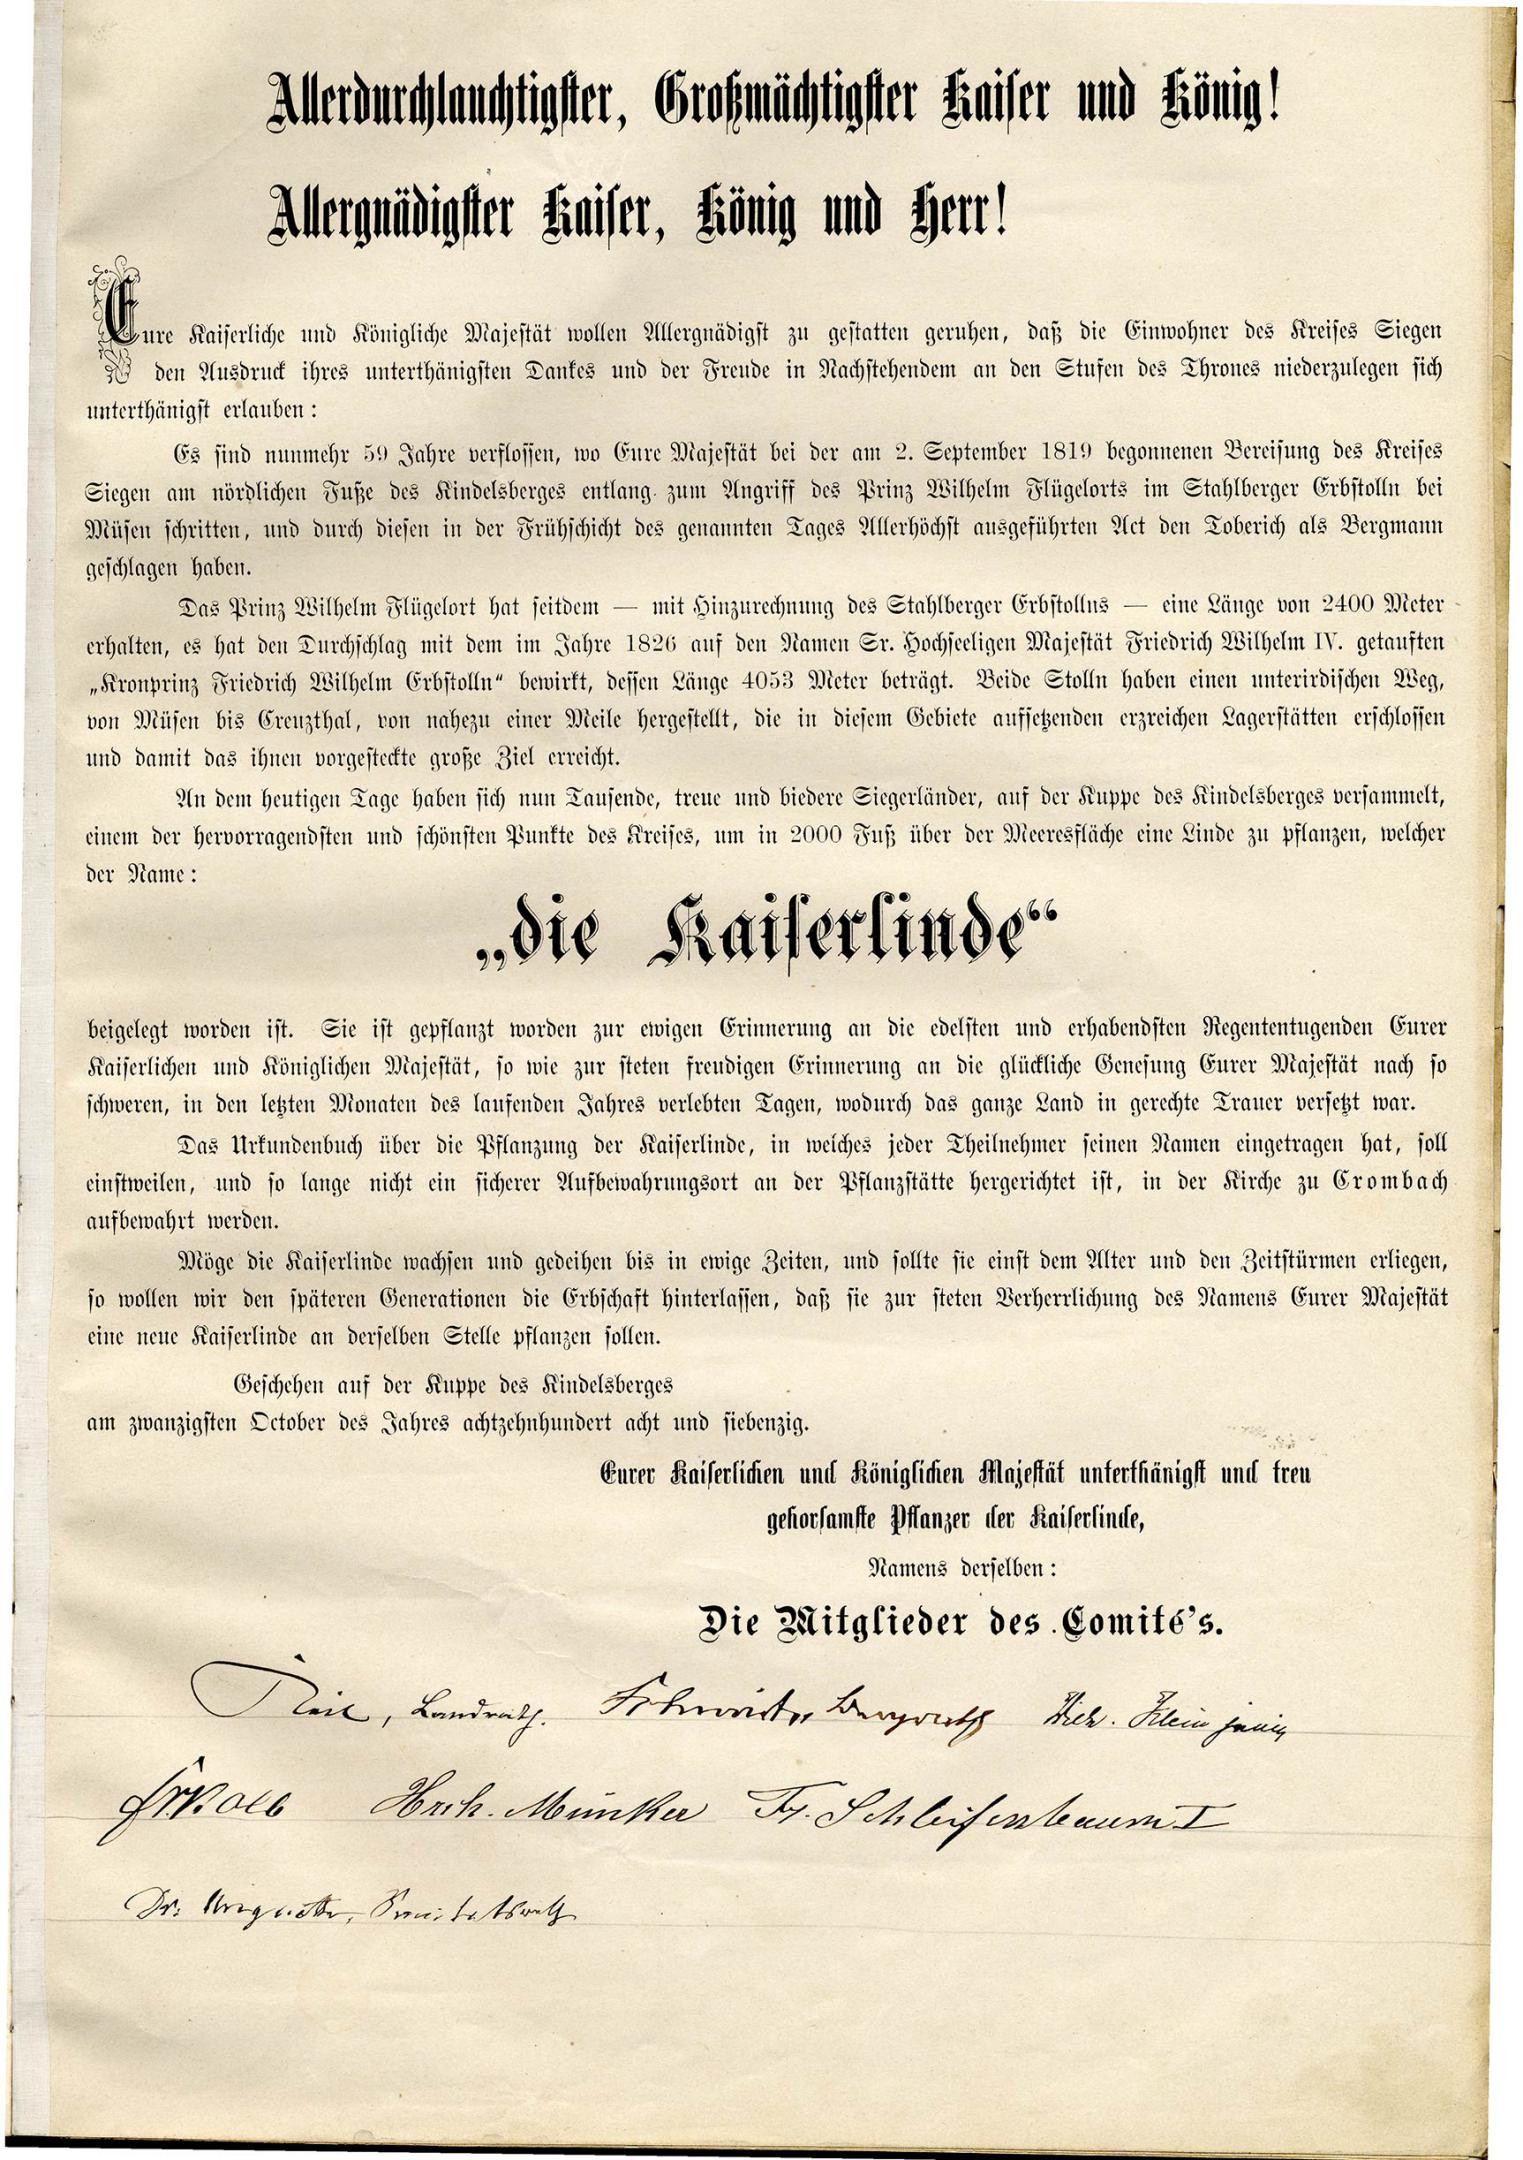 Allerdurchlauchtigster, Großmächtigster Kaiser und König!
Allergnädigster Kaiser, König und Herr!
Eure Kaiserliche und Königliche Majestät wollen Allergnädigst zu gestatten geruhen, daß die Einwohner des Kreises Siegen
den Ausdruck ihres unterthänigsten Dankes und der Freude in Nachstehendem an den Stufen des Thrones niederzulegen sich
unterthänigst erlauben:
Es sind nunmehr 59 Jahre verflossen, wo Eure Majestät bei der am 2. September 1819 begonnenen Bereisung des Kreises
Siegen am nördlichen Fuße des Kindelsberges entlang zum Angriff des Prinz Wilhelm Flügelorts im Stahlberger Erbstolln bei
Müsen schritten, und durch diesen in der Frühschicht des genannten Tages Allerhöchst ausgeführten Act den Toberich als Bergmann
geschlagen haben.
Das Prinz Wilhelm Flügelort hat seitdem — mit Hinzurechnung des Stahlberger Erbstollns — eine Länge von 2400 Meter
erhalten, es hat den Durchschlag mit dem im Jahre 1826 auf den Namen Sr. Hochseeligen Majestät Friedrich Wilhelm IV. getauften
„Kronprinz Friedrich Wilhelm Erbstolln“ bewirkt, dessen Länge 4053 Meter beträgt. Beide Stolln haben einen unterirdischen Weg,
von Müsen bis Creuzthal, von nahezu einer Meile hergestellt, die in diesem Gebiete aufsetzenden erzreichen Lagerstätten erschlossen
und damit das ihnen vorgesteckte große Ziel erreicht.
An dem heutigen Tage haben sich nun Tausende, treue und biedere Siegerländer, auf der Kuppe des Kindelsberges versammelt,
einem der hervorragendsten und schönsten Punkte des Kreises, um in 2000 Fuß über der Meeresfläche eine Linde zu pflanzen, welcher
der Name:
„die Kaiserlinde“
beigelegt worden ist. Sie ist gepflanzt worden zur ewigen Erinnerung an die edelsten und erhabendsten Regententugenden Eurer
Kaiserlichen und Königlichen Majestät, so wie zur steten freudigen Erinnerung an die glückliche Genesung Eurer Majestät nach so
schweren, in den letzten Monaten des laufenden Jahres verlebten Tagen, wodurch das ganze Land in gerechte Trauer versetzt war.
Das Urkundenbuch über die Pflanzung der Kaiserlinde, in welches jeder Theilnehmer seinen Namen eingetragen hat, soll
einstweilen, und so lange nicht ein sicherer Aufbewahrungsort an der Pflanzstätte hergerichtet ist, in der Kirche zu Crombach
aufbewahrt werden.
Möge die Kaiserlinde wachsen und gedeihen bis in ewige Zeiten, und sollte sie einst dem Alter und den Zeitstürmen erliegen,
so wollen wir den späteren Generationen die Erbschaft hinterlassen, daß sie zur steten Verherrlichung des Namens Eurer Majestät
eine neue Kaiserlinde an derselben Stelle pflanzen sollen.
Geschehen auf der Kuppe des Kindelsberges
am zwanzigsten October des Jahres achtzehnhundert acht und siebenzig.
Eurer Kaiserlichen und Königlichen Majestät unterthänigst und treu
gehorsamste Pflanzer der Kaiserlinde,
Namens derselben:
Die Mitglieder des Comité's.
Landrath. Bergrath Klein junior
Hrch. Münker Fr. Schleifenbaum I
Dr. Sanitätsrath